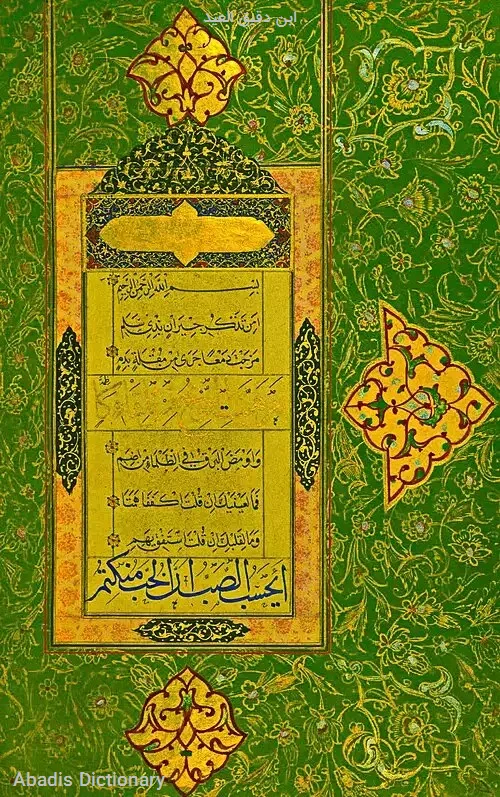 ابن دقیق العید
بسم الله الرحمن الرحيم
امن تذكر جيران بذي سلم
مزجت دمعا جرى من مقلة بدم
واومض البرق في الظلماء من اضم
فما لعينيك ان قلت اكففا همتا
وما لقلبك ان قلت استفق يهم
ايحسب الصب ان الحب منكتم
Abadis Dictionary